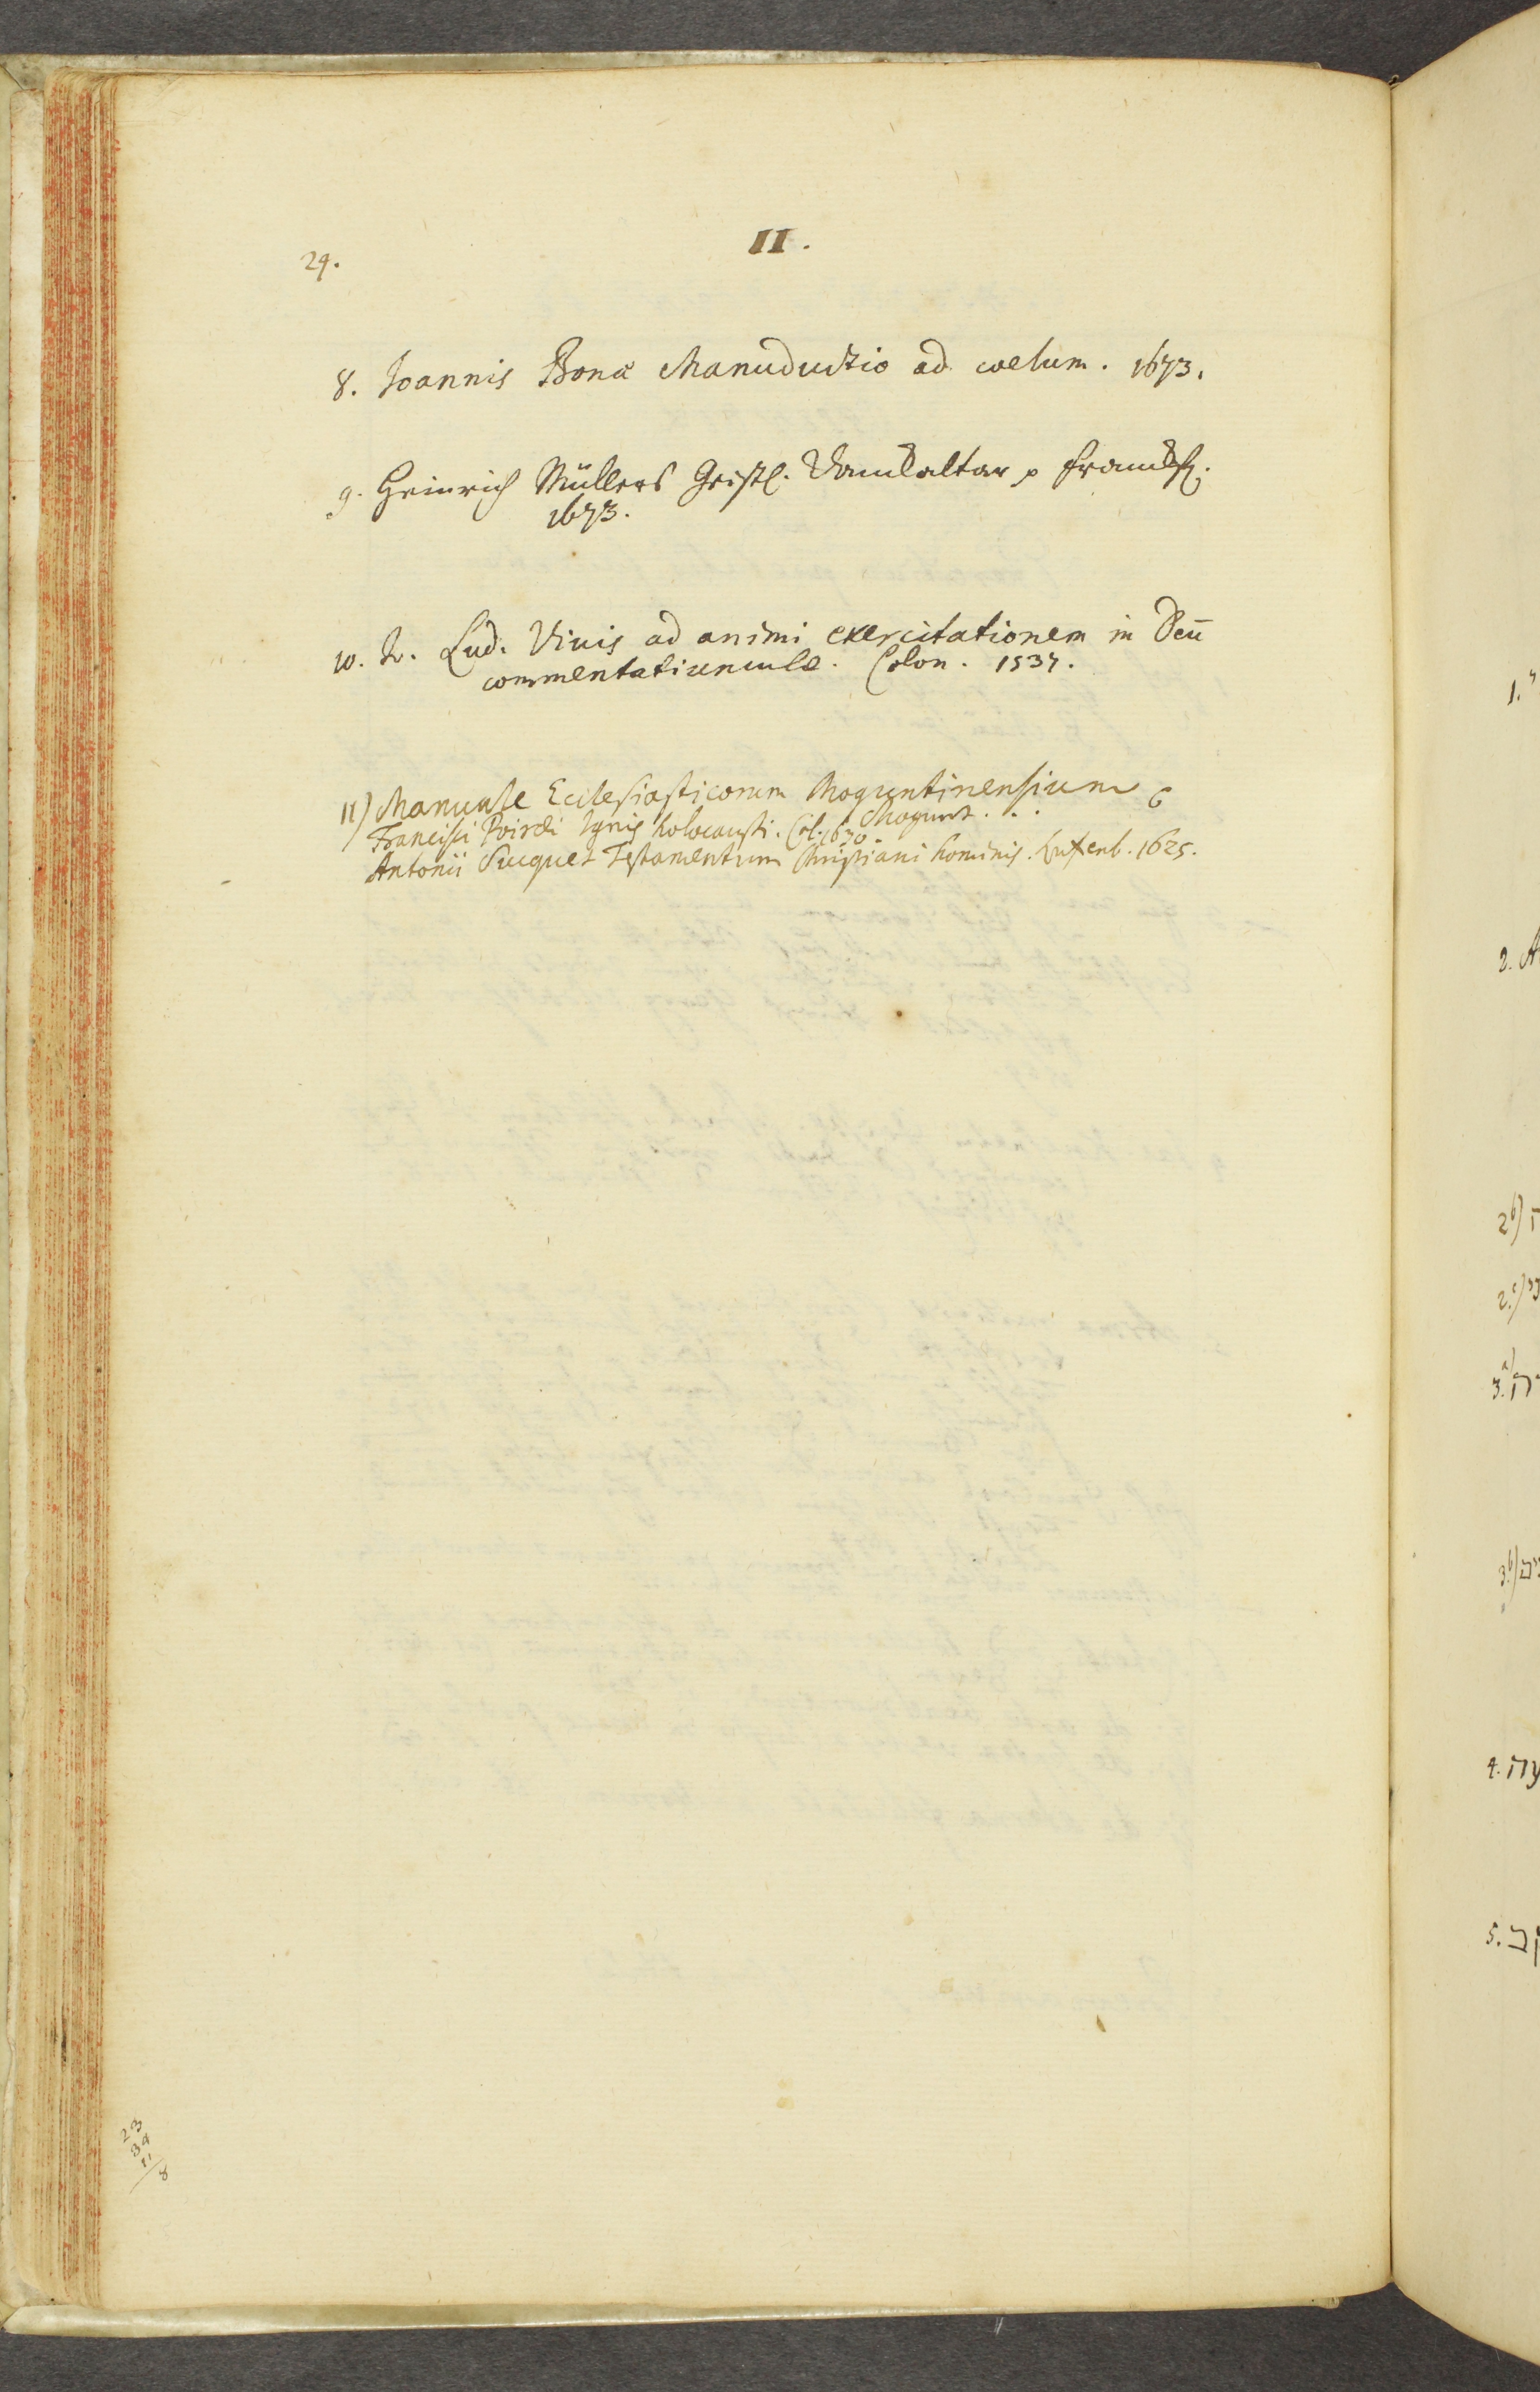 II.
24.
8. Ioannis Bona Manuductio ad coelum. 1673.
9. Heinrich Müllers Geistl. Danckaltar p Franckf.
1673.
10. Io. Lud. Vivis ad animi exercitationem in Deū
commentatiunculæ. Colon. 1537.
11) Manuale Ecclesiasticorum Moguntinensium
Mogunt. . .
Francisci Poiræi Ignis holocausti. Col. 1630.
Antonii Sucquet Testamentum Christiani hominis. Luxenb. 1625.
23
34
11
8
1.
2. A
2 b)
2. c)
3. a)
3. b)
4.
5.